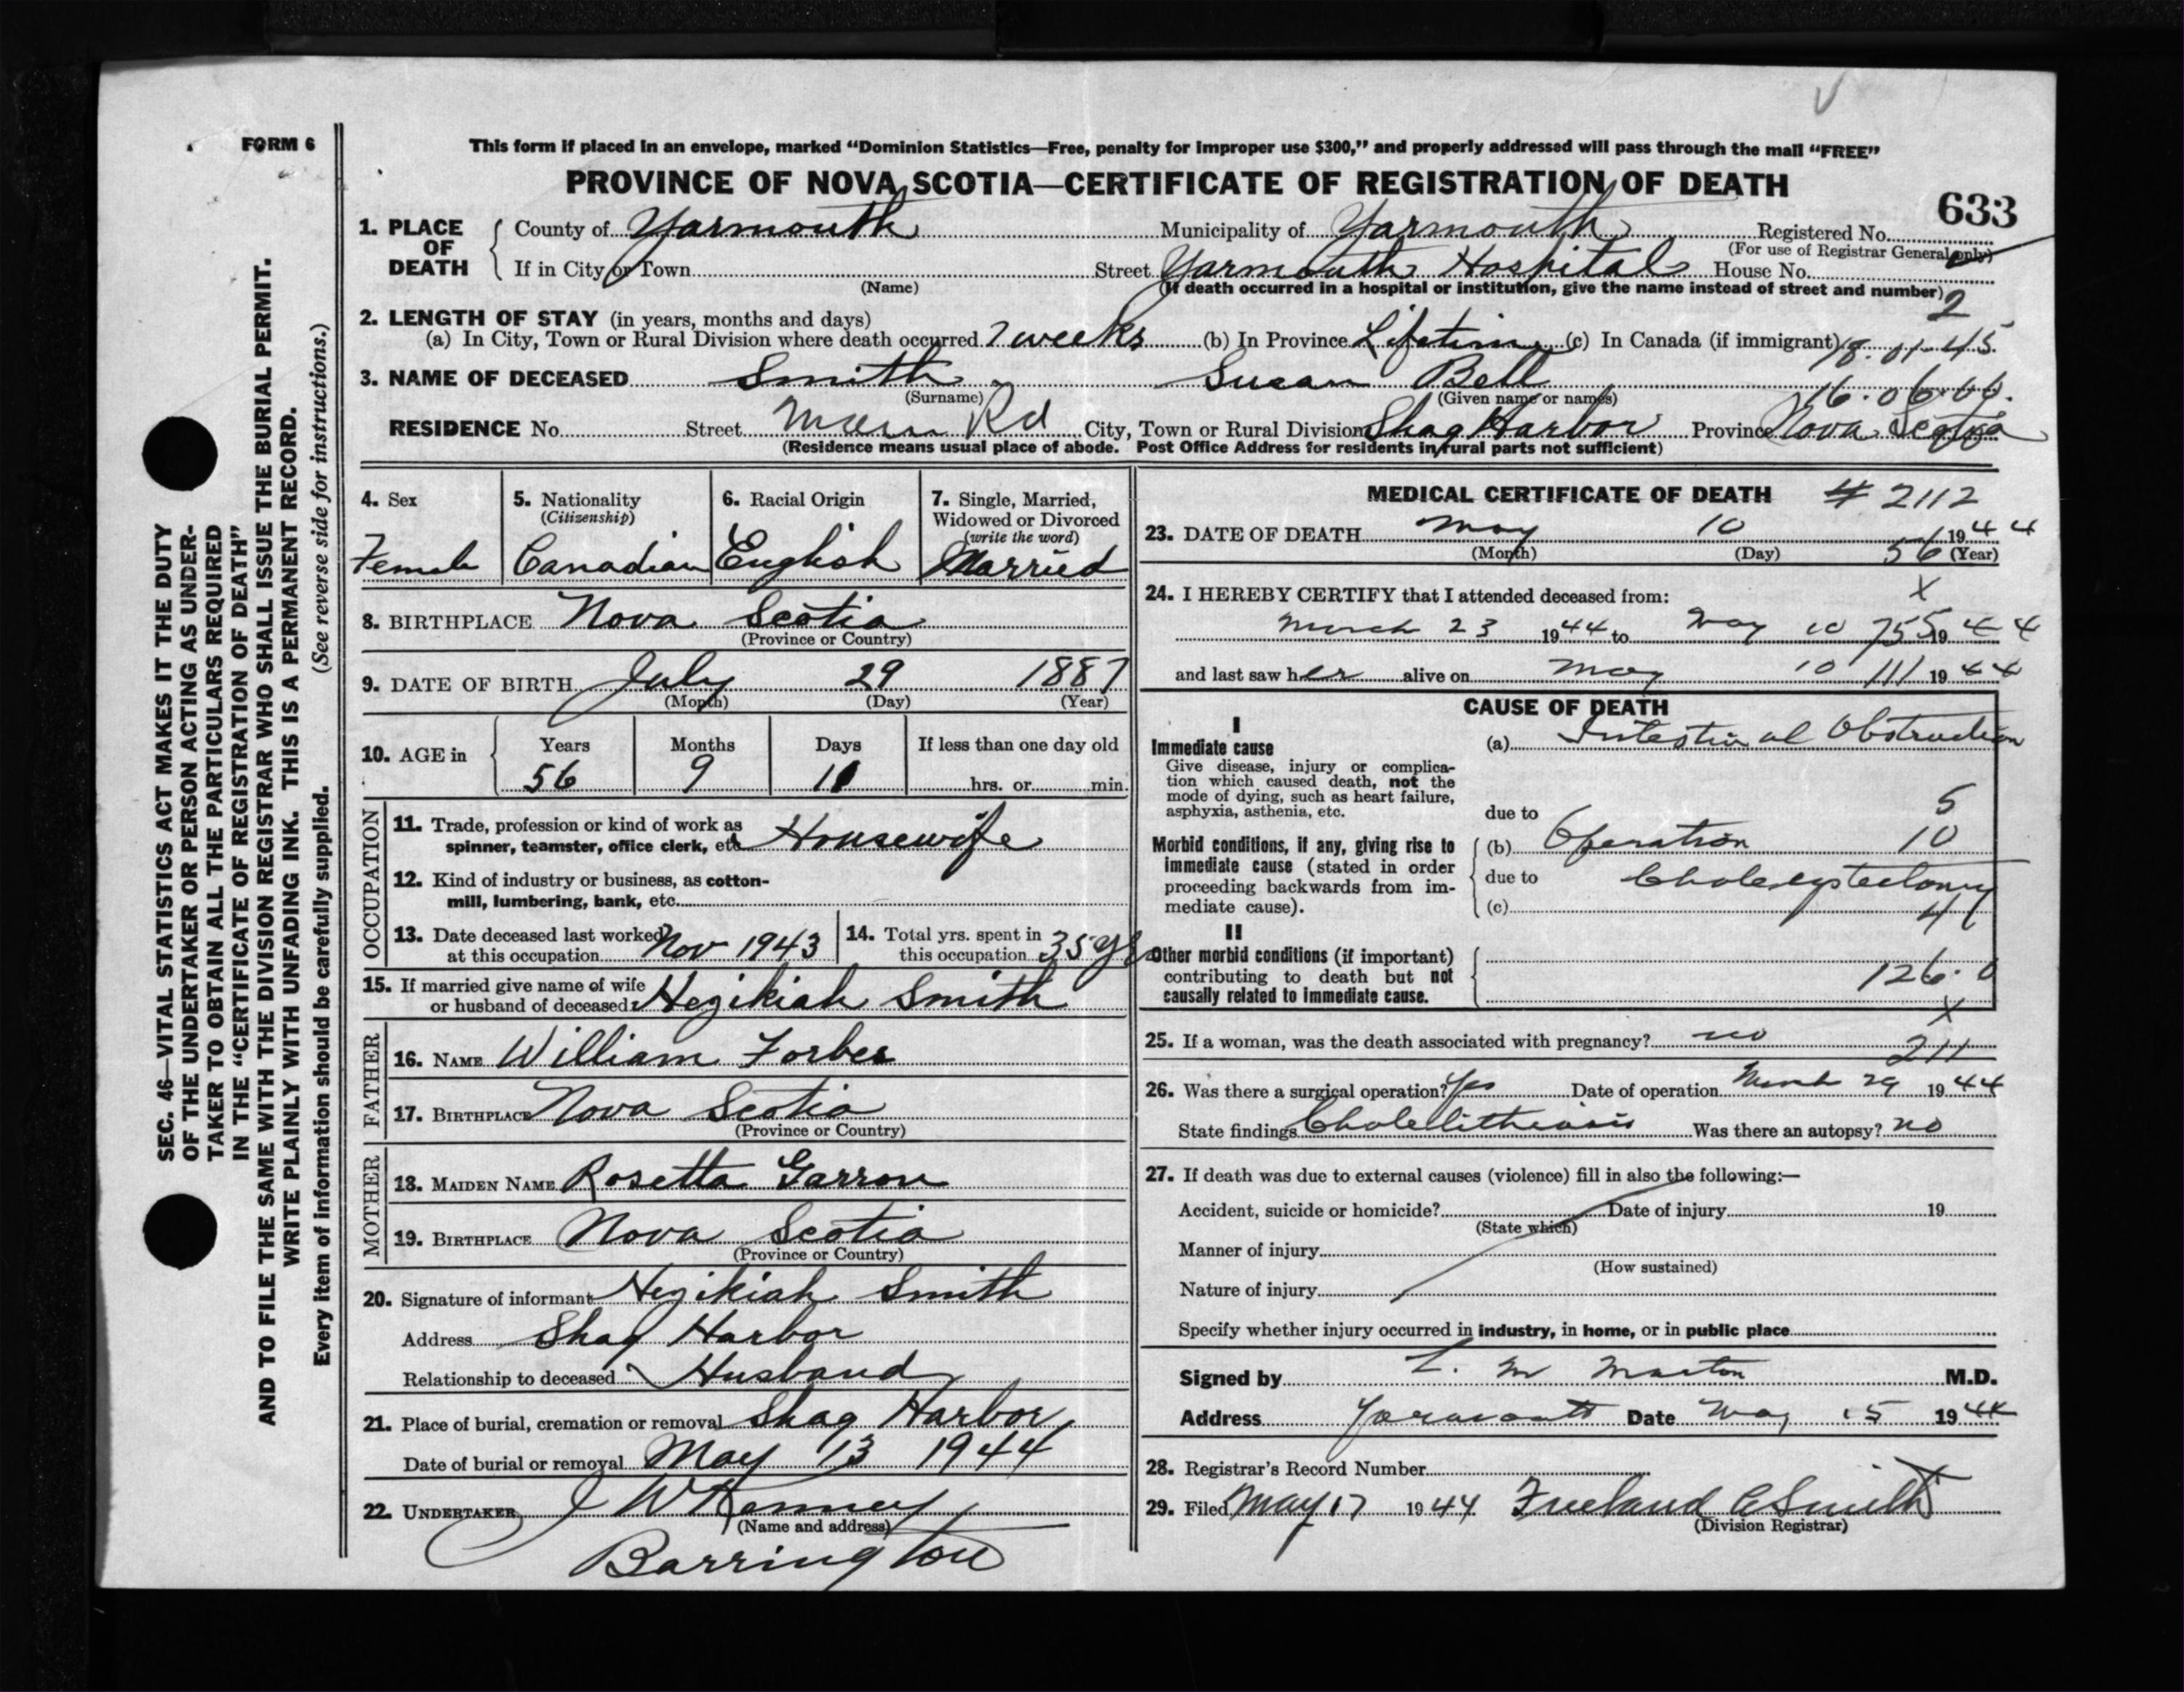 FORM 6
This form if placed in an envelope, marked “Dominion Statistics—Free, penalty for improper use $300,” and properly addressed will pass through the mail “FREE”
PROVINCE OF NOVA SCOTIA—CERTIFICATE OF REGISTRATION OF DEATH
633
1. PLACE OF DEATH County of Yarmouth Municipality of Yarmouth Registered No.
(For use of Registrar General only)
If in City or Town Street Yarmouth Hospital House No.
(Name) (If death occurred in a hospital or institution, give the name instead of street and number)
2
2. LENGTH OF STAY (in years, months and days)
(a) In City, Town or Rural Division where death occurred 7 weeks (b) In Province Lifetime (c) In Canada (if immigrant) 18.01.45
3. NAME OF DECEASED Smith Susan Bell
(Surname) (Given name or names) 16.06.06.
RESIDENCE No. Street Main Rd City, Town or Rural Division Shag Harbor Province Nova Scotia
(Residence means usual place of abode. Post Office Address for residents in rural parts not sufficient)
4. Sex
Female
5. Nationality
(Citizenship)
Canadian
6. Racial Origin
English
7. Single, Married,
Widowed or Divorced
(write the word)
Married
8. BIRTHPLACE Nova Scotia
(Province or Country)
9. DATE OF BIRTH July 29 1887
(Month) (Day) (Year)
10. AGE in Years Months Days If less than one day old
56 9 11 hrs. or min.
OCCUPATION
11. Trade, profession or kind of work as
spinner, teamster, office clerk, etc. Housewife
12. Kind of industry or business, as cotton-
mill, lumbering, bank, etc.
13. Date deceased last worked
at this occupation Nov 1943
14. Total yrs. spent in
this occupation 35 yrs
15. If married give name of wife
or husband of deceased Hezikiah Smith
FATHER
16. NAME William Forbes
17. BIRTHPLACE Nova Scotia
(Province or Country)
MOTHER
18. MAIDEN NAME Rosetta Garron
19. BIRTHPLACE Nova Scotia
(Province or Country)
20. Signature of informant Hezikiah Smith
Address Shag Harbor
Relationship to deceased Husband
21. Place of burial, cremation or removal Shag Harbor
Date of burial or removal May 13 1944
22. UNDERTAKER J W Kenney
(Name and address)
Barrington
MEDICAL CERTIFICATE OF DEATH # 2112
23. DATE OF DEATH May 10 1944
(Month) (Day) (Year)
56
24. I HEREBY CERTIFY that I attended deceased from:
X
March 23 1944 to May 10 755 1944
and last saw her alive on May 10 111 1944
CAUSE OF DEATH
I
Immediate cause
Give disease, injury or complica-
tion which caused death, not the
mode of dying, such as heart failure,
asphyxia, asthenia, etc.
(a) Intestinal Obstruction
due to 5
Morbid conditions, if any, giving rise to
immediate cause (stated in order
proceeding backwards from im-
mediate cause).
(b) Operation 10
due to Cholecystectomy
(c) 4
II
Other morbid conditions (if important)
contributing to death but not
causally related to immediate cause.
126.0
X
25. If a woman, was the death associated with pregnancy? no
211
26. Was there a surgical operation? Yes Date of operation March 29 1944
State findings Cholelithiasis Was there an autopsy? no
27. If death was due to external causes (violence) fill in also the following:—
Accident, suicide or homicide? Date of injury 19
(State which)
Manner of injury
(How sustained)
Nature of injury
Specify whether injury occurred in industry, in home, or in public place
Signed by L. M Morton M.D.
Address Yarmouth Date May 15 1944
28. Registrar's Record Number
29. Filed May 17 1944 Freeland C Smith
(Division Registrar)
SEC. 46—VITAL STATISTICS ACT MAKES IT THE DUTY
OF THE UNDERTAKER OR PERSON ACTING AS UNDER-
TAKER TO OBTAIN ALL THE PARTICULARS REQUIRED
IN THE “CERTIFICATE OF REGISTRATION OF DEATH”
AND TO FILE THE SAME WITH THE DIVISION REGISTRAR WHO SHALL ISSUE THE BURIAL PERMIT.
WRITE PLAINLY WITH UNFADING INK. THIS IS A PERMANENT RECORD.
Every item of information should be carefully supplied. (See reverse side for instructions.)